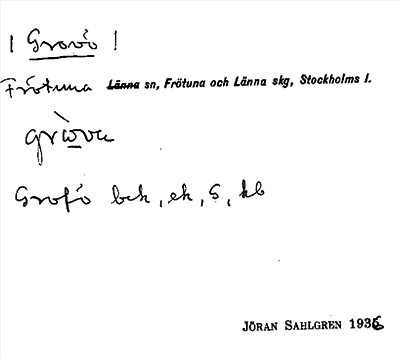 | Grovö |
Frötuna Länna sn, Frötuna och Länna skg, Stockholms l.
Grofö bek, ek, S, kb
JÖRAN SAHLGREN 1936